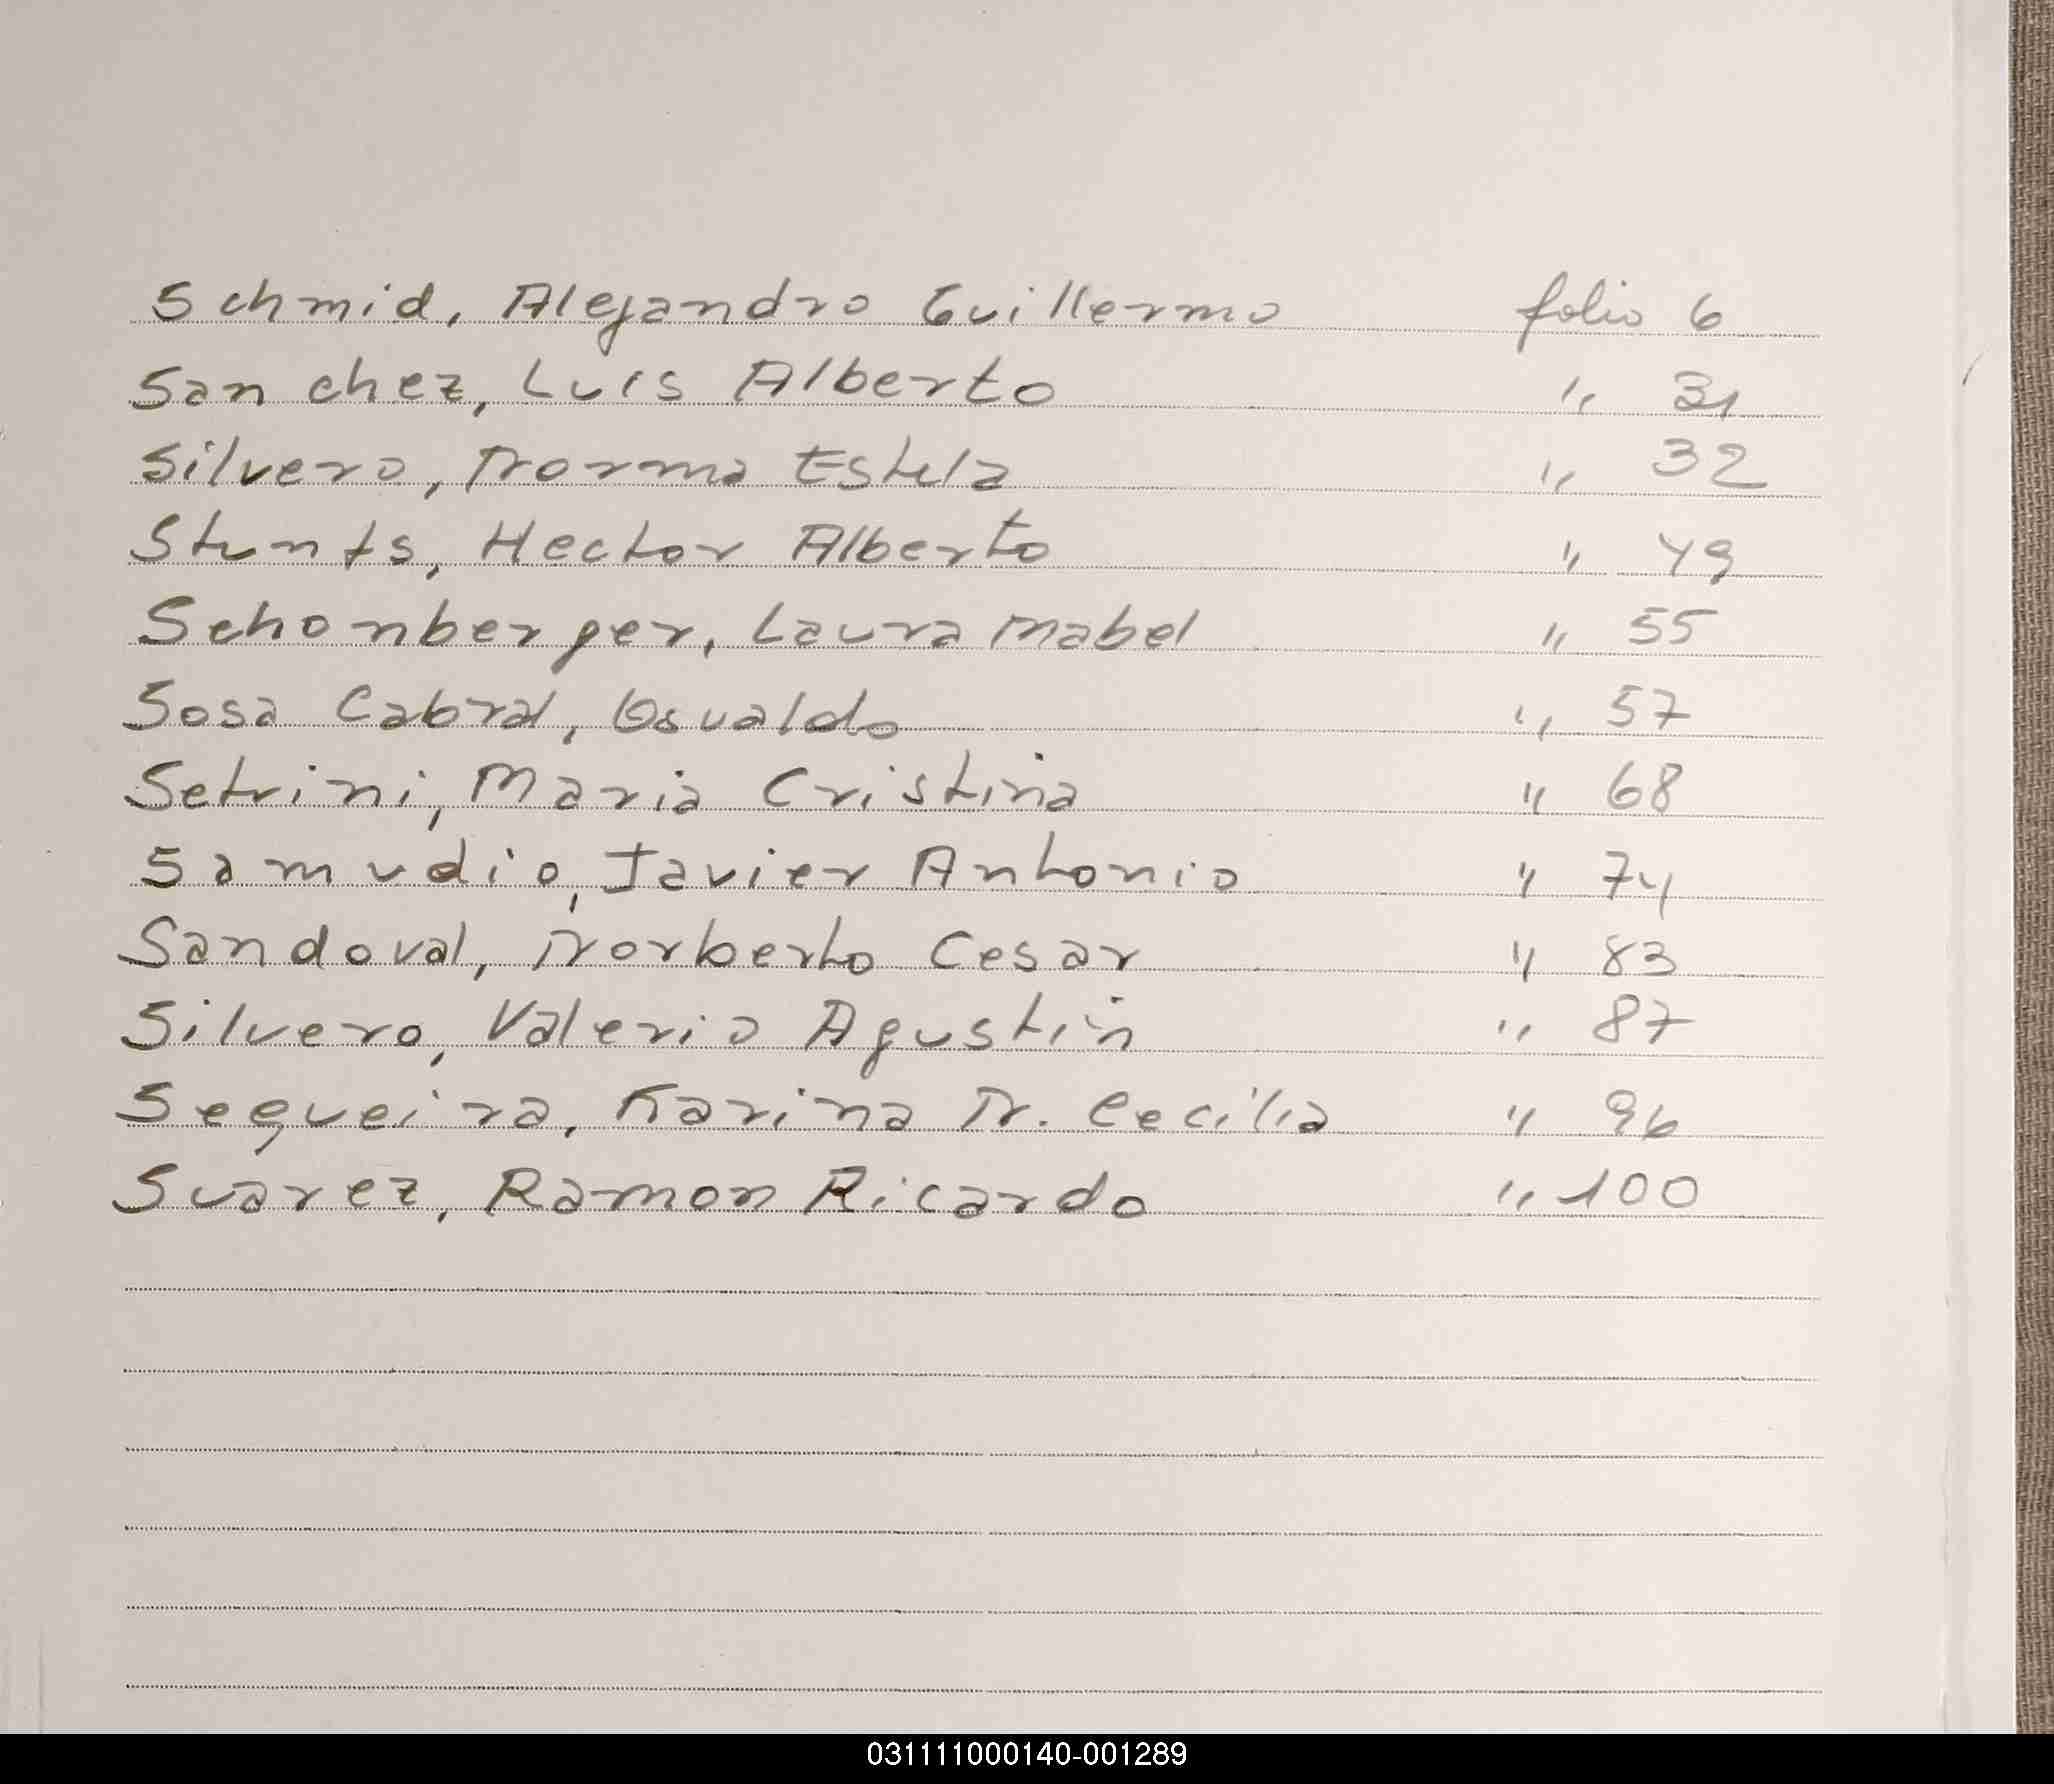 Schmid, Alejandro Guillermo folio 6
Sanchez, Luis Alberto " 31
Silvero, Norma Estela " 32
Stunts, Hector Alberto " 49
Schonberger, Laura Mabel " 55
Sosa Cabral, Osvaldo " 57
Setrini, Maria Cristina " 68
Samudio, Javier Antonio " 74
Sandoval, Norberto Cesar " 83
Silvero, Valerio Agustin " 87
Sequeira, Karina N. Cecilia " 96
Suarez, Ramon Ricardo " 100
031111000140-001289